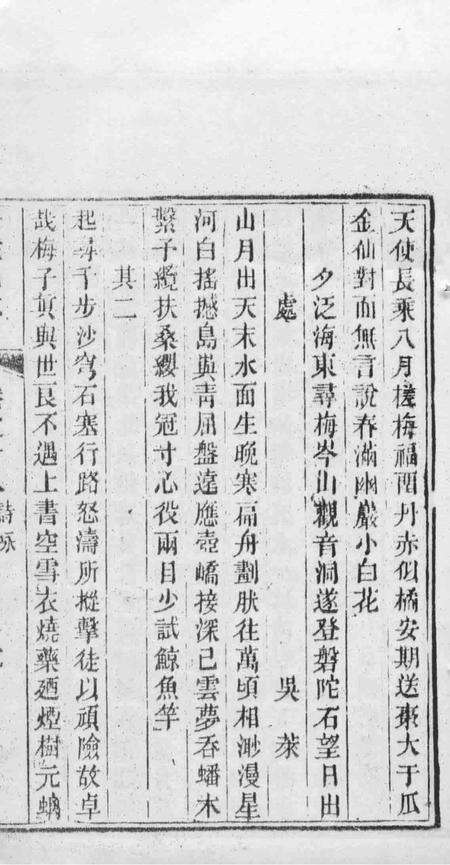 天使長乘八月槎梅福留丹赤似橘安期送棗大于瓜
金仙對面無言說春滿幽巖小白花
夕泛海東尋梅岑山觀音洞遂登磐陀石望日出
處 吳萊
山月出天末水面生晚寒扁舟劃然往萬頃相渺漫星
河白搖撼島嶼青屈盤遠應壺嶠接深已雲夢吞蟠木
繫予纜扶桑纓我冠寸心役兩目少試鯨魚竿
其二
起尋千步沙穹石塞行路怒濤所摐擊徒以頑險故卓
哉梅子眞與世良不遇上書空雪衣燒藥廼煙樹元螭